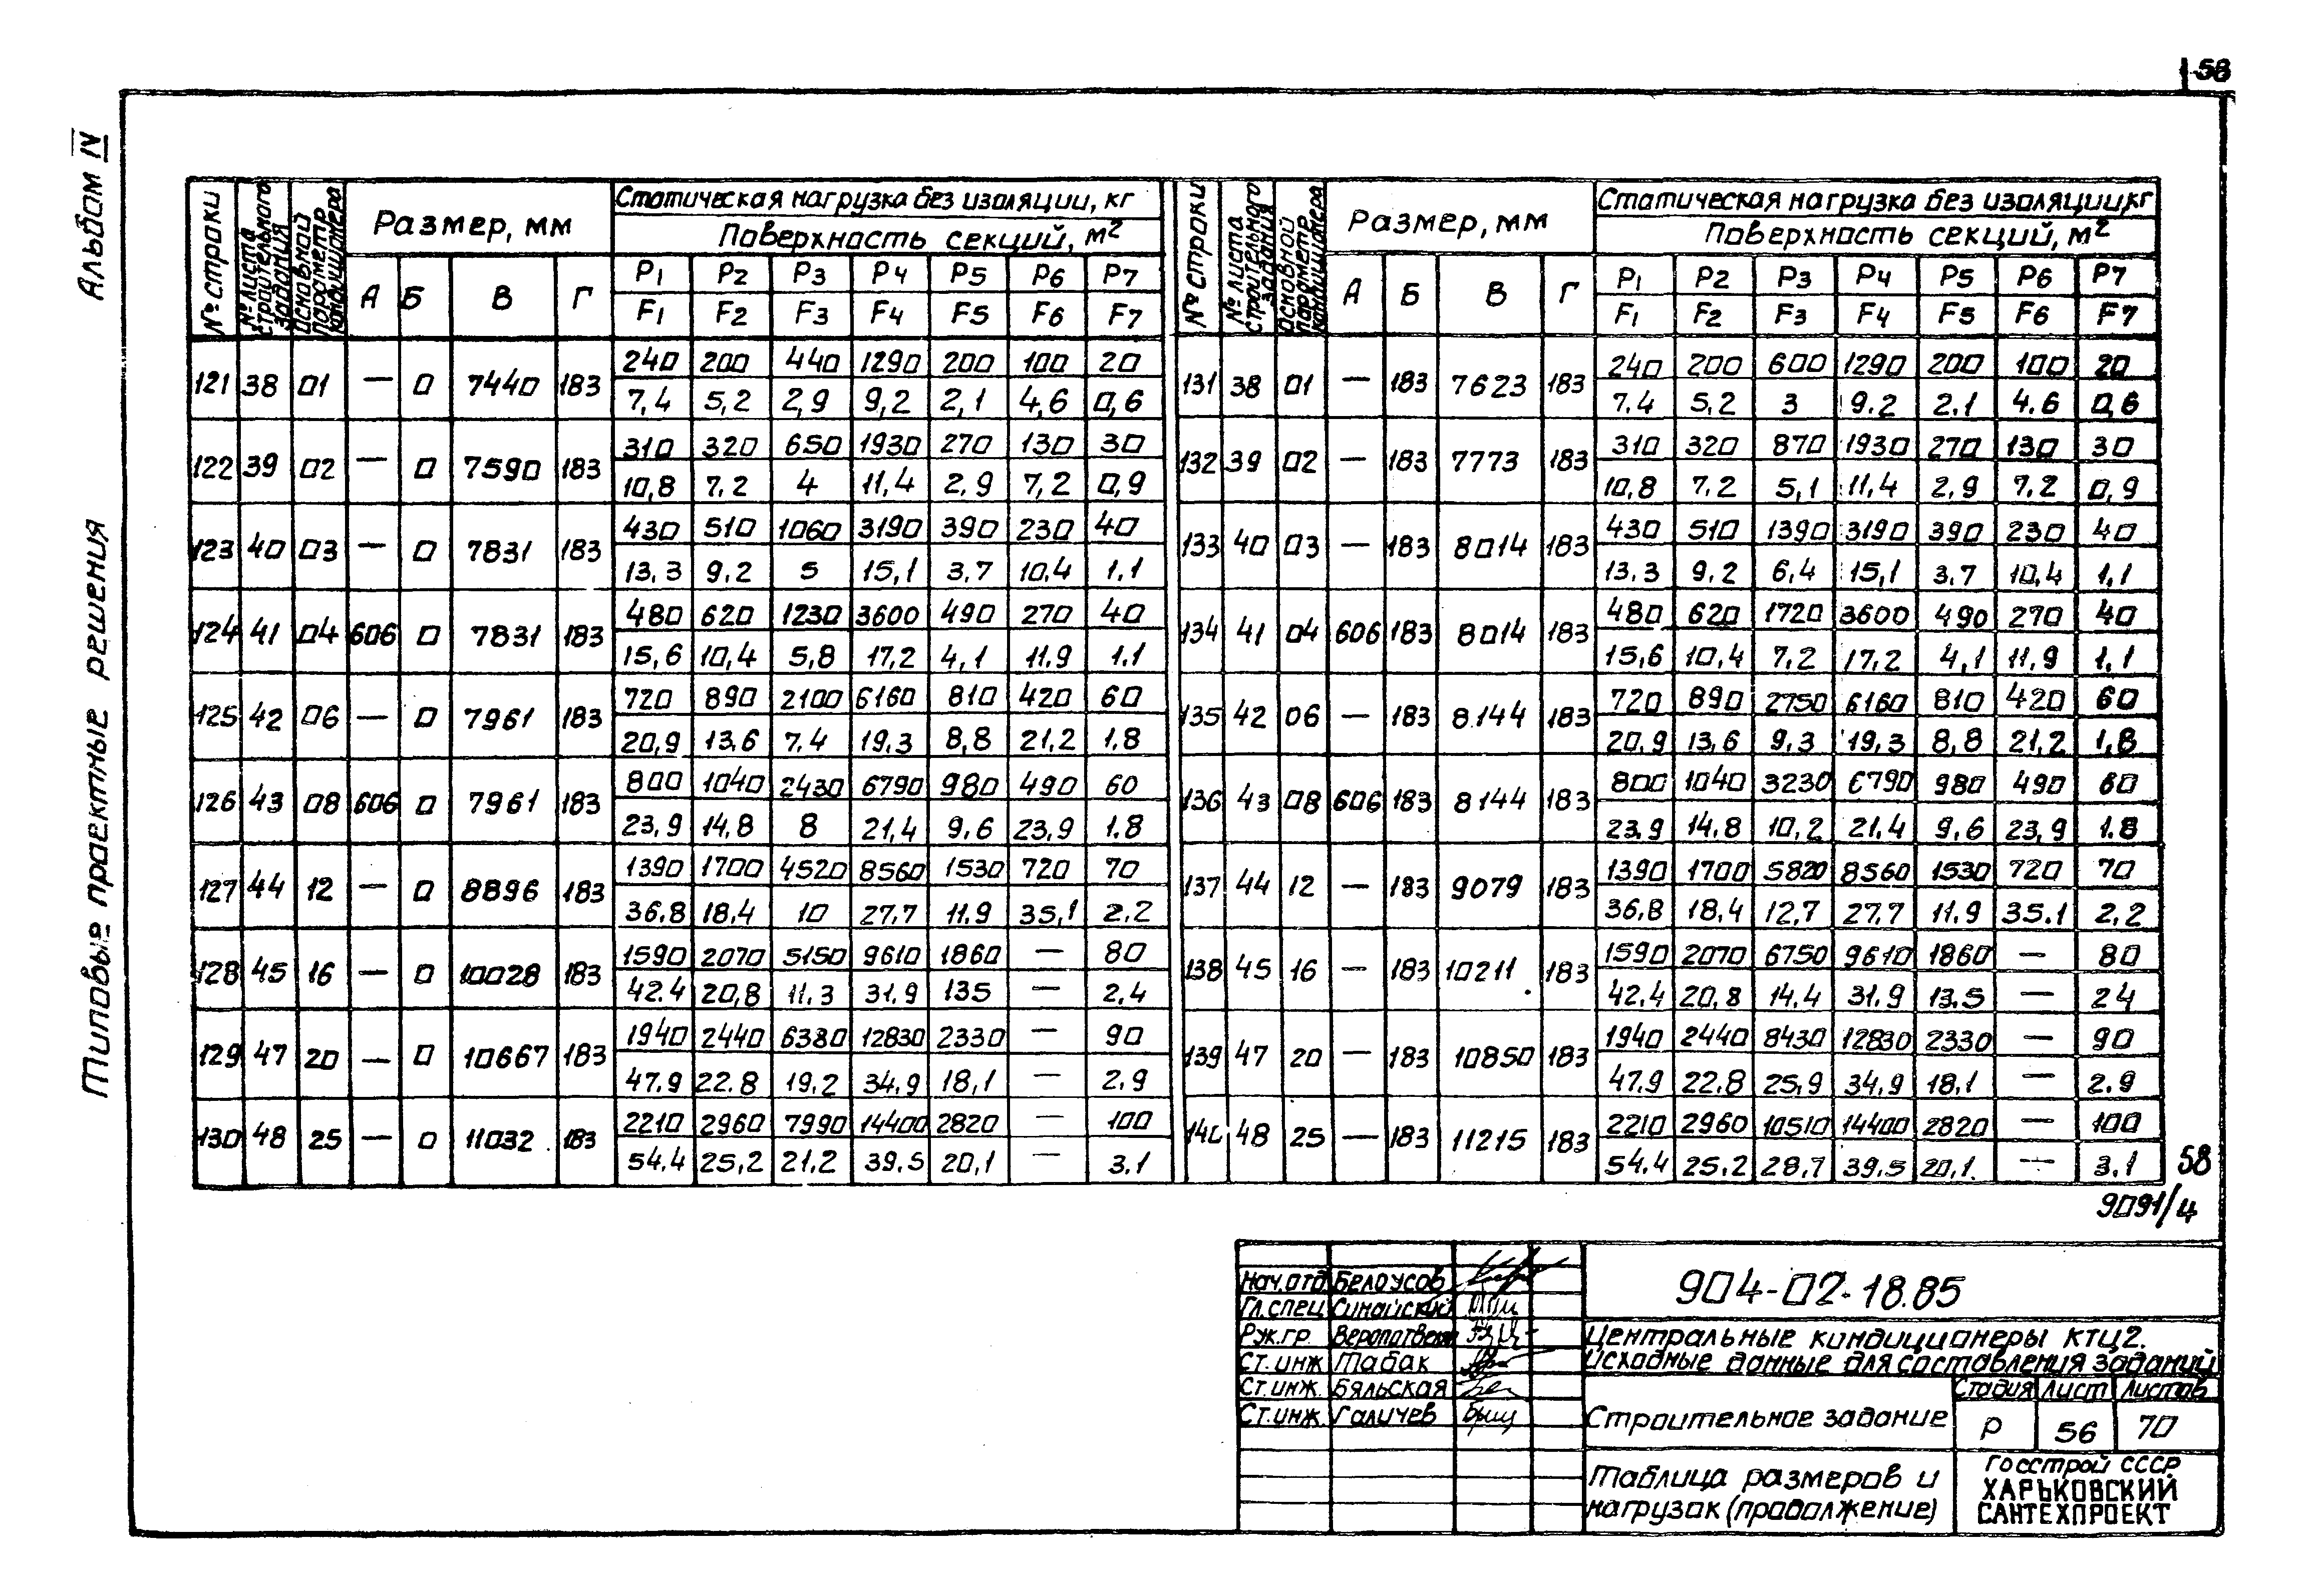 58
Альбом IV
Типовые проектные решения
№ строки | № листа строительного задания | Основной параметр кондиционера | Размер, мм | Статическая нагрузка без изоляции, кг
Поверхность секций, м²
А | Б | В | Г | P1 | P2 | P3 | P4 | P5 | P6 | P7
F1 | F2 | F3 | F4 | F5 | F6 | F7
121 | 38 | 01 | — | 0 | 7440 | 183 | 240 | 200 | 440 | 1290 | 200 | 100 | 20
7,4 | 5,2 | 2,9 | 9,2 | 2,1 | 4,6 | 0,6
122 | 39 | 02 | — | 0 | 7590 | 183 | 310 | 320 | 650 | 1930 | 270 | 130 | 30
10,8 | 7,2 | 4 | 11,4 | 2,9 | 7,2 | 0,9
123 | 40 | 03 | — | 0 | 7831 | 183 | 430 | 510 | 1060 | 3190 | 390 | 230 | 40
13,3 | 9,2 | 5 | 15,1 | 3,7 | 10,4 | 1.1
124 | 41 | 04 | 606 | 0 | 7831 | 183 | 480 | 620 | 1230 | 3600 | 490 | 270 | 40
15,6 | 10,4 | 5,8 | 17,2 | 4,1 | 11.9 | 1.1
125 | 42 | 06 | — | 0 | 7961 | 183 | 720 | 890 | 2100 | 6160 | 810 | 420 | 60
20,9 | 13,6 | 7,4 | 19,3 | 8,8 | 21,2 | 1,8
126 | 43 | 08 | 606 | 0 | 7961 | 183 | 800 | 1040 | 2430 | 6790 | 980 | 490 | 60
23,9 | 14,8 | 8 | 21,4 | 9,6 | 23,9 | 1.8
127 | 44 | 12 | — | 0 | 8896 | 183 | 1390 | 1700 | 4520 | 8560 | 1530 | 720 | 70
36.8 | 18,4 | 10 | 27,7 | 11.9 | 35,1 | 2.2
128 | 45 | 16 | — | 0 | 10028 | 183 | 1590 | 2070 | 5150 | 9610 | 1860 | — | 80
42.4 | 20,8 | 11.3 | 31.9 | 135 | — | 2.4
129 | 47 | 20 | — | 0 | 10667 | 183 | 1940 | 2440 | 6380 | 12830 | 2330 | — | 90
47.9 | 22.8 | 19.2 | 34,9 | 18,1 | — | 2.9
130 | 48 | 25 | — | 0 | 11032 | 183 | 2210 | 2960 | 7990 | 14400 | 2820 | — | 100
54.4 | 25,2 | 21.2 | 39.5 | 20,1 | — | 3.1
№ строки | № листа строительного задания | Основной параметр кондиционера | Размер, мм | Статическая нагрузка без изоляции, кг
Поверхность секций, м²
А | Б | В | Г | P1 | P2 | P3 | P4 | P5 | P6 | P7
F1 | F2 | F3 | F4 | F5 | F6 | F7
131 | 38 | 01 | — | 183 | 7623 | 183 | 240 | 200 | 600 | 1290 | 200 | 100 | 20
7.4 | 5,2 | 3 | 9.2 | 2.1 | 4.6 | 0,6
132 | 39 | 02 | — | 183 | 7773 | 183 | 310 | 320 | 870 | 1930 | 270 | 130 | 30
10,8 | 7,2 | 5,1 | 11,4 | 2,9 | 7,2 | 0,9
133 | 40 | 03 | — | 183 | 8014 | 183 | 430 | 510 | 1390 | 3190 | 390 | 230 | 40
13,3 | 9,2 | 6,4 | 15,1 | 3,7 | 10,4 | 1,1
134 | 41 | 04 | 606 | 183 | 8014 | 183 | 480 | 620 | 1720 | 3600 | 490 | 270 | 40
15,6 | 10,4 | 7,2 | 17,2 | 4,1 | 11,9 | 1.1
135 | 42 | 06 | — | 183 | 8144 | 183 | 720 | 890 | 2750 | 6160 | 810 | 420 | 60
20,9 | 13,6 | 9,3 | 19,3 | 8,8 | 21,2 | 1,8
136 | 43 | 08 | 606 | 183 | 8144 | 183 | 800 | 1040 | 3230 | 6790 | 980 | 490 | 60
23,9 | 14,8 | 10,2 | 21.4 | 9,6 | 23,9 | 1.8
137 | 44 | 12 | — | 183 | 9079 | 183 | 1390 | 1700 | 5820 | 8560 | 1530 | 720 | 70
36,8 | 18,4 | 12,7 | 27,7 | 11.9 | 35.1 | 2,2
138 | 45 | 16 | — | 183 | 10211 | 183 | 1590 | 2070 | 6750 | 9610 | 1860 | — | 80
42,4 | 20,8 | 14.4 | 31.9 | 13.5 | — | 24
139 | 47 | 20 | — | 183 | 10850 | 183 | 1940 | 2440 | 8430 | 12830 | 2330 | — | 90
47.9 | 22.8 | 25,9 | 34,9 | 18.1 | — | 2.9
140 | 48 | 25 | — | 183 | 11215 | 183 | 2210 | 2960 | 10510 | 14400 | 2820 | — | 100
54.4 | 25.2 | 28,7 | 39,5 | 20,1. | — | 3,1
58
9091/4
Нач.отд Белоусов
Гл.спец Синайский
Рук.гр.
Ст.инж Табак
Ст.инж. Бяльская
Ст.инж. Галичев
904-02-18.85
Центральные кондиционеры КТЦ2.
Исходные данные для составления заданий
Строительное задание
Стадия | Лист | Листов
Р | 56 | 70
Таблица размеров и
нагрузок (продолжение)
Госстрой СССР
ХАРЬКОВСКИЙ
САНТЕХПРОЕКТ